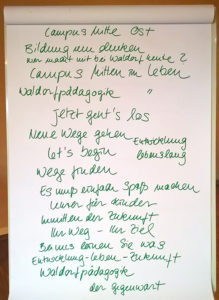 Campus Mitte Ost
Bildung neu denken
wer macht mit bei Waldorf heute?
Campus Mitten im Leben
Waldorfpädagogik "
jetzt geht's los
Neue Wege gehen
Entwicklung
lebenslang
let's begin
Wege finden
Es muß einfach Spaß machen
Lernen für
Inmitten der Zukunft
Ihr Weg - Ihr Ziel
Bei uns lernen Sie was
Entwicklung-leben-Zukunft
Waldorfpädagogik
der Gegenwart